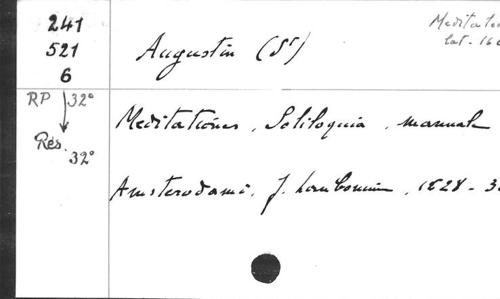 241
521
6
Meditatio
lat. 16
Augustin (St)
RP 32°
Rés. 32°
Meditationes, Soliloquia, manuale
Amsterodami, J. 1628 - 32